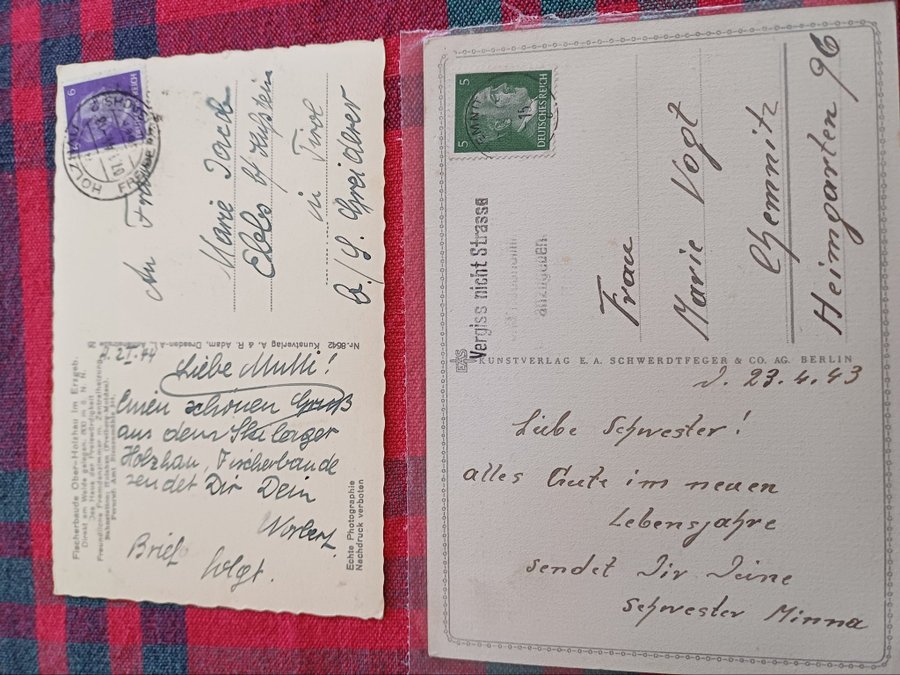 6
DEUTSCHES REICH
HOLZHAU
An
Marie
Ebbs b/ Kufstein
in Tirol
b./ G. Greiderer
Fischerbaude Ober-Holzhau im Erzgeb.
Direkt am Walde gelegen, 800 m ü. N. N.
Das Haus der Preiswürdigkeit
Freundliche Fremdenzimmer m. Zentralheizung
Nr. 8642 Kunstverlag A. & R. Adam, Dresden-A.
Liebe Mutti!
Einen schönen Gruß
aus dem
Holzhau, Fischerbaude
sendet Dir Dein
Norbert
Brief
folgt.
Echte Photographie
Nachdruck verboten
5 5
DEUTSCHES REICH
Vergiss nicht Strasse
anzugeben
Frau
Marie Vogt
Chemnitz
Heimgarten 96
KUNSTVERLAG E. A. SCHWERDTFEGER & CO. AG. BERLIN
d. 23.4.43
Liebe Schwester!
alles Gute im neuen
Lebensjahre
sendet Dir Deine
Schwester Minna